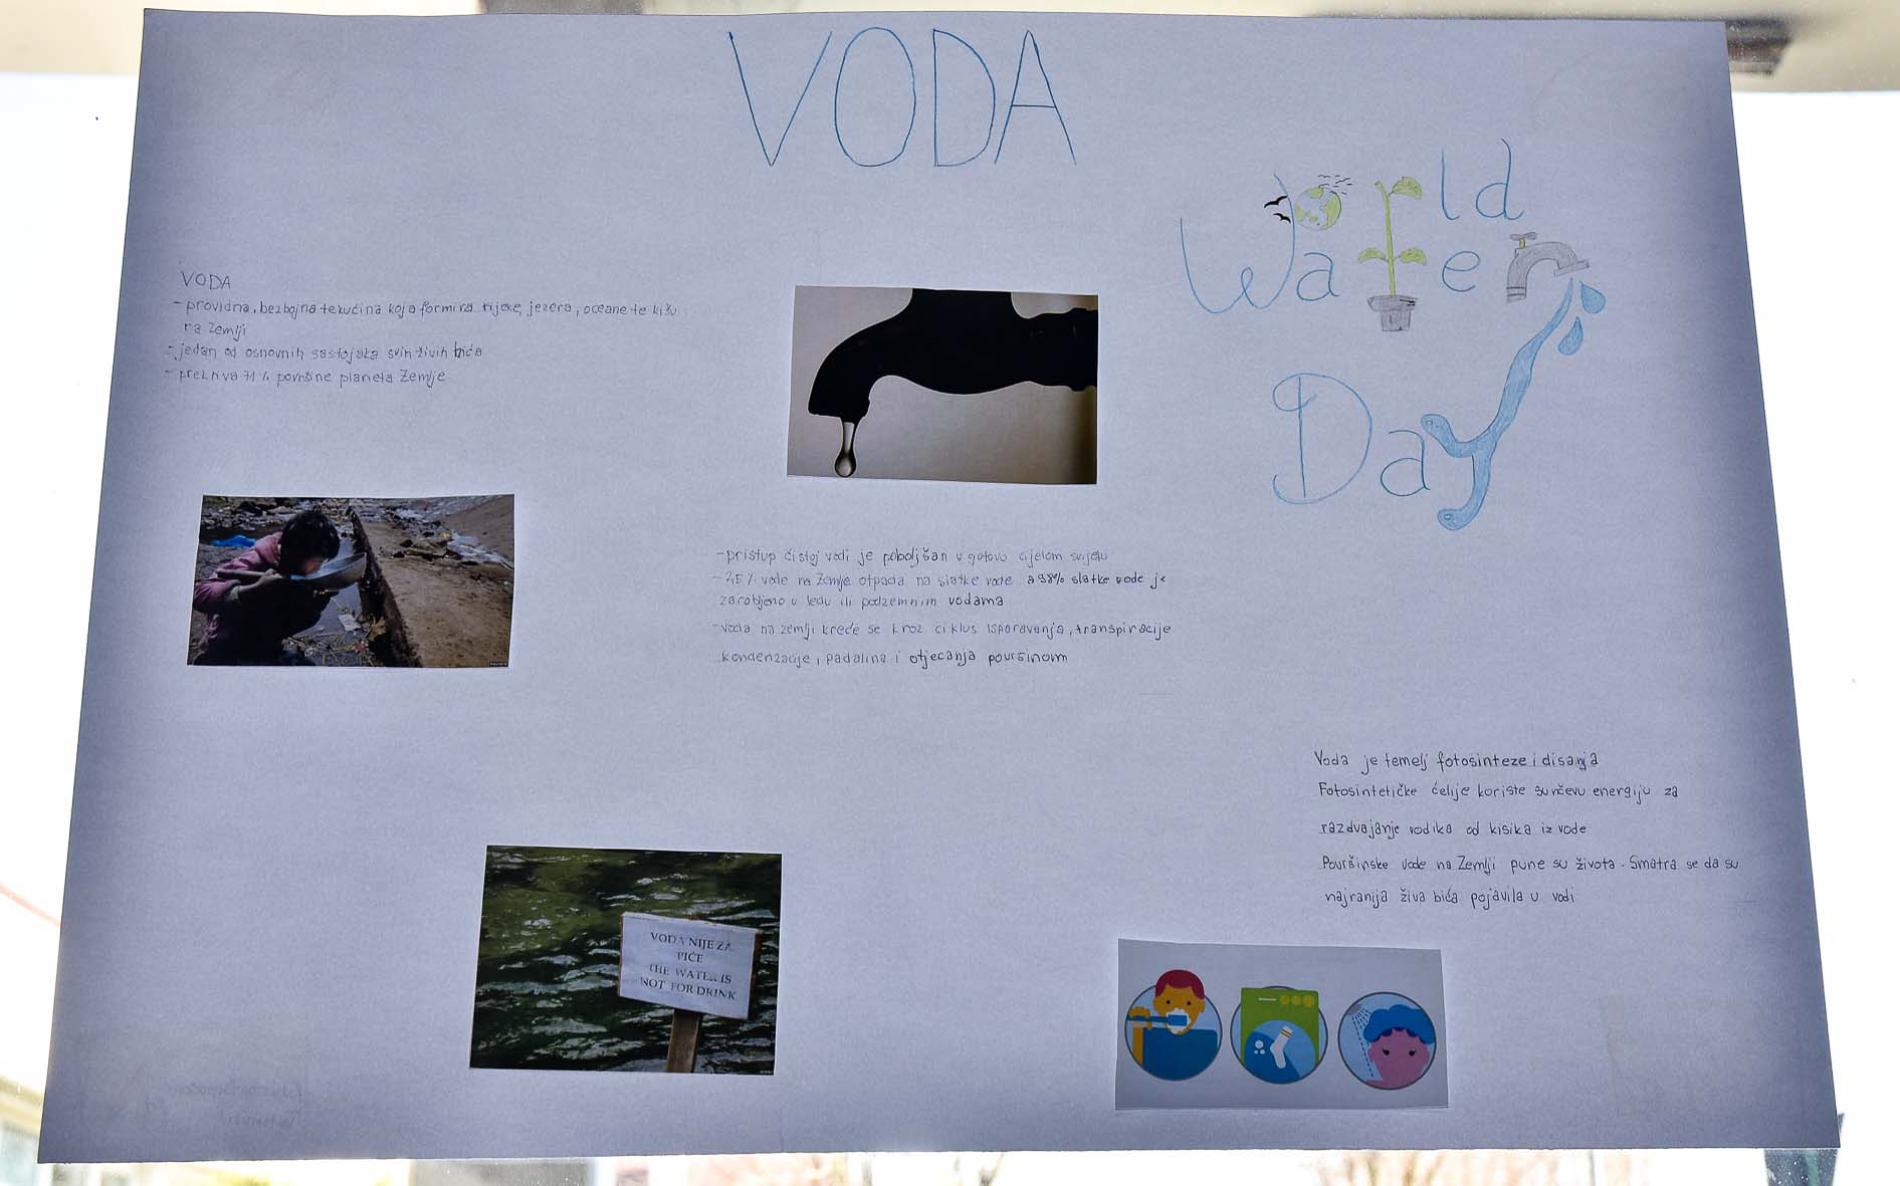 VODA
World
Water
Day
VODA
- providna, bezbojna tekućina koja formira rijeke, jezera, oceane te kišu
na Zemlji
- jedan od osnovnih sastojaka svih živih bića
- prekriva 71% površine planeta Zemlje
- pristup čistoj vodi je poboljšan u gotovo cijelom svijetu
- 2,5% vode na Zemlje otpada na slatke vode a 98% slatke vode je
zarobljeno u ledu ili podzemnim vodama
- voda na zemlji kreće se kroz ciklus isparavanja, transpiracije
kondenzacije, padalina i otjecanja površinom
Voda je temelj fotosinteze i disanja
Fotosintetičke ćelije koriste sunčevu energiju za
razdvajanje vodika od kisika iz vode
Površinske vode na Zemlji pune su života. Smatra se da su
najranija živa bića pojavila u vodi
VODA NIJE ZA
PIĆE
THE WATER IS
NOT FOR DRINK